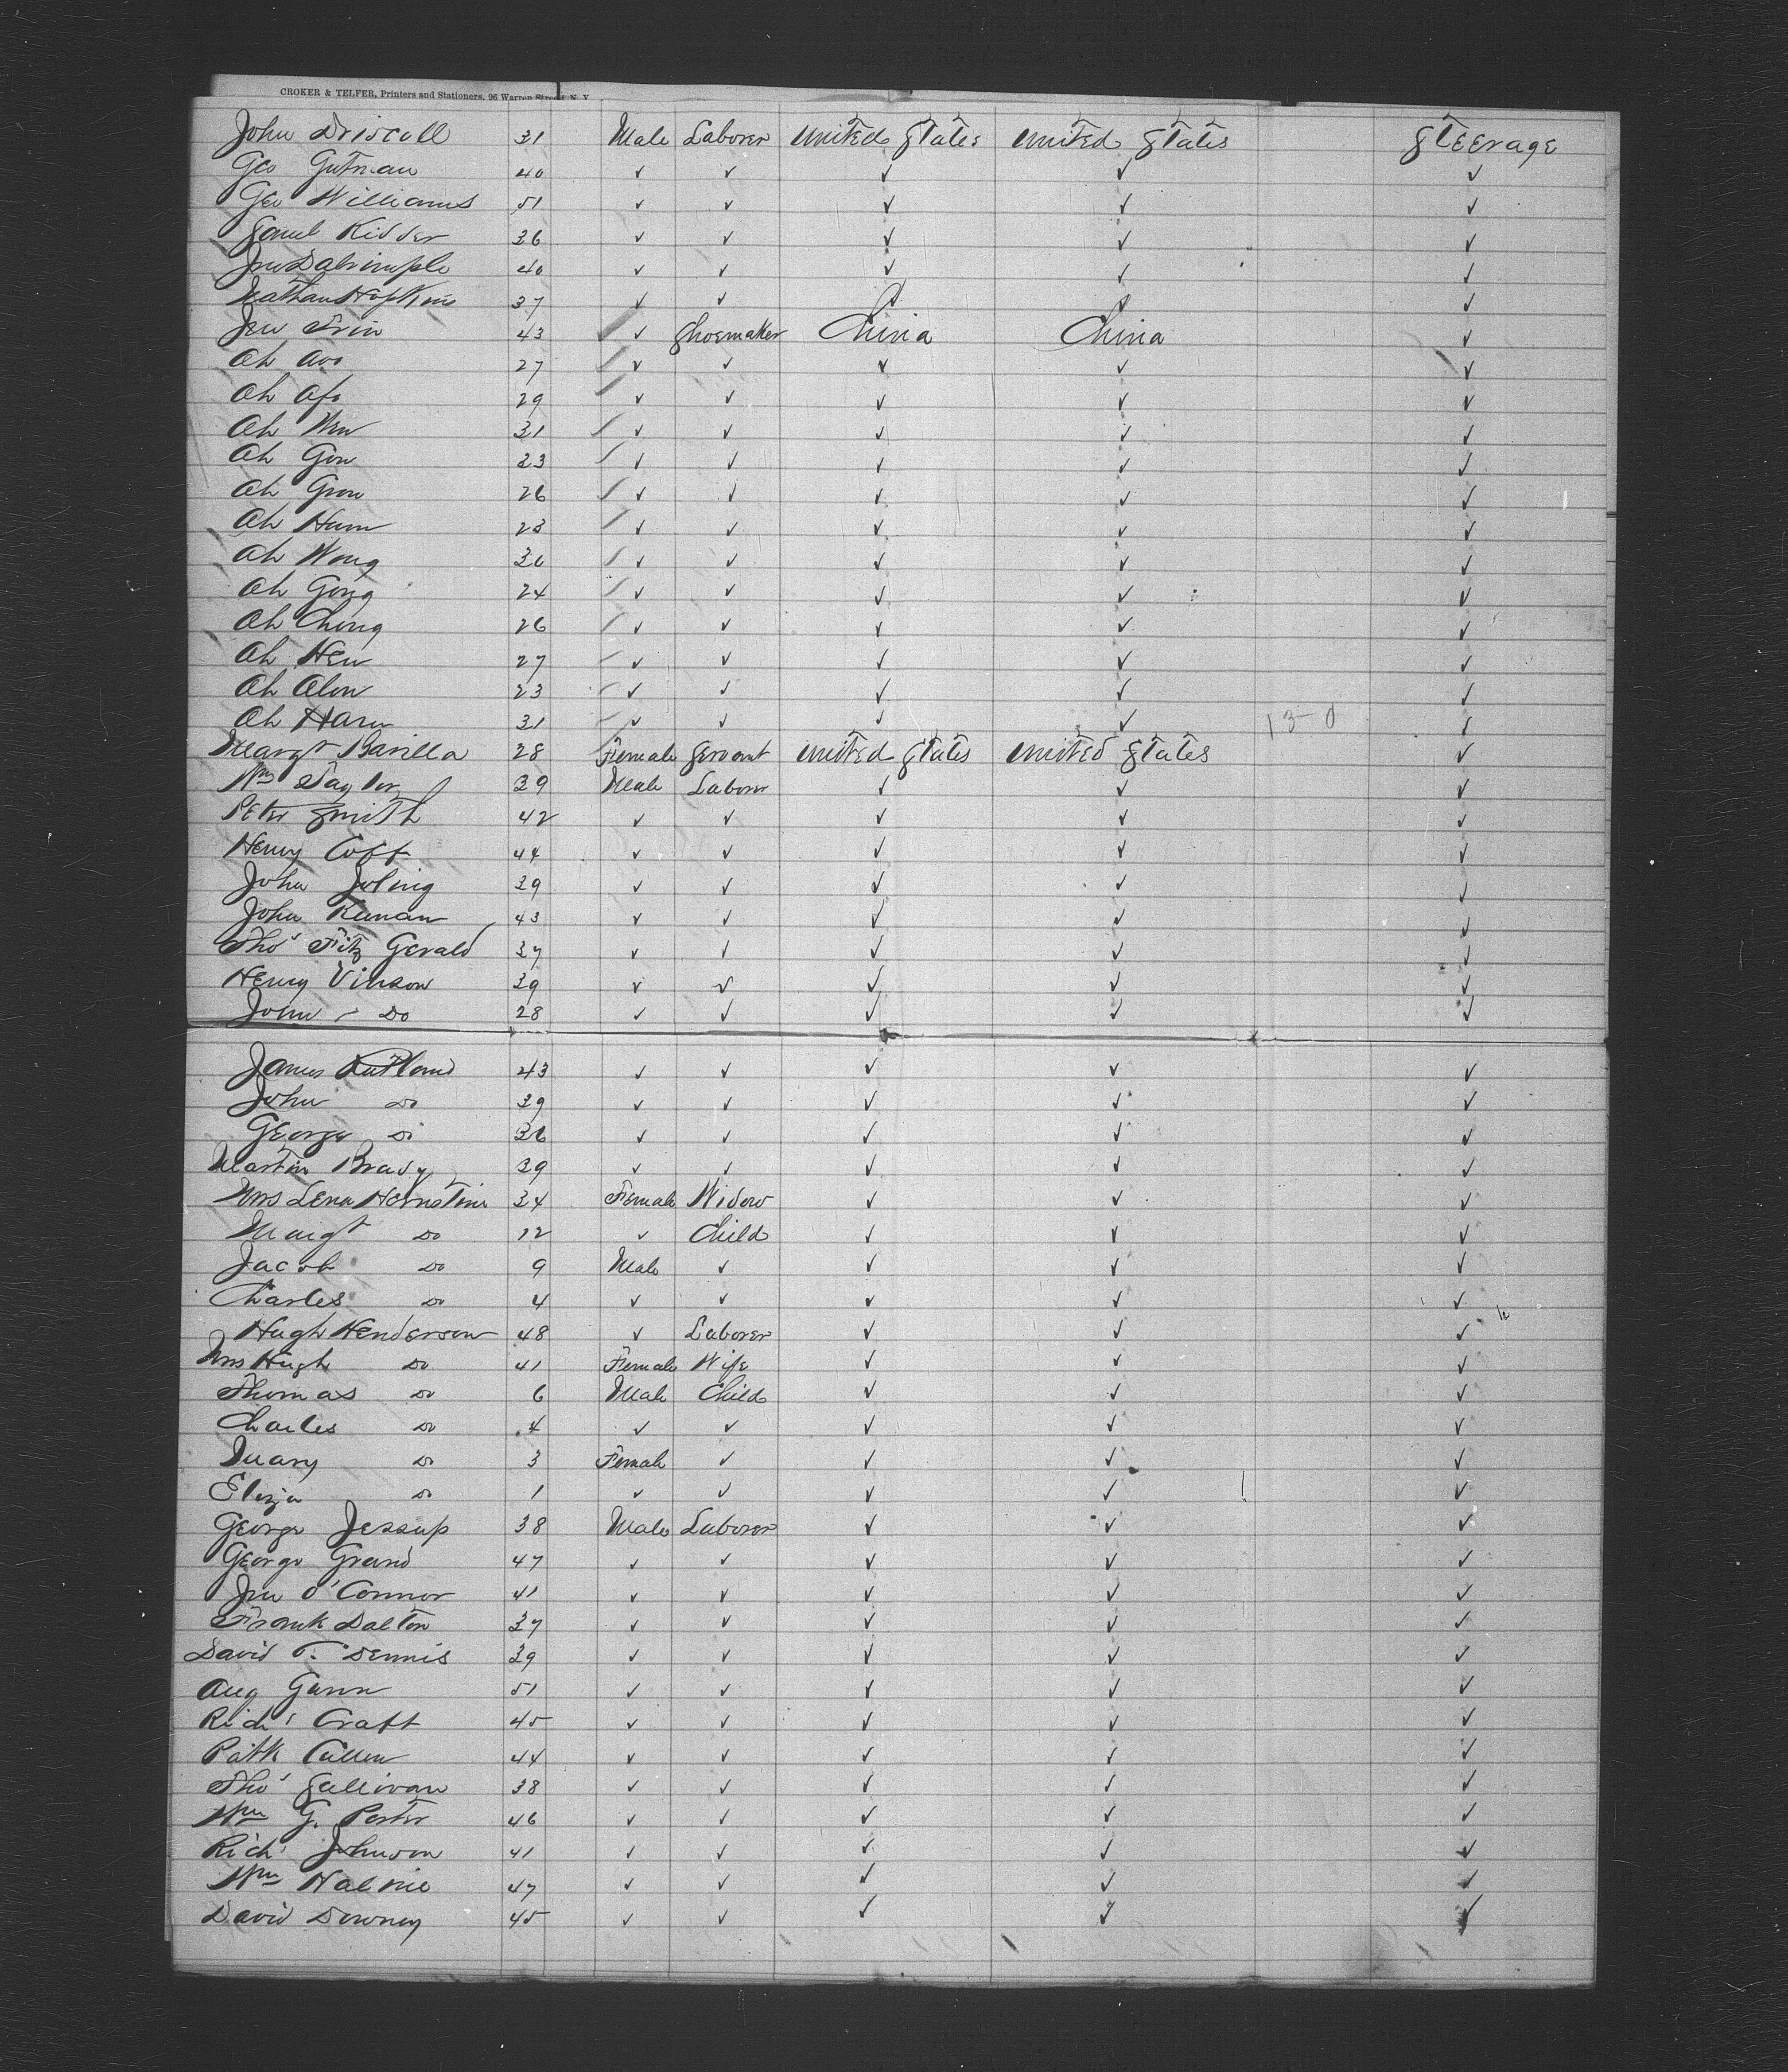 CROKER & TELFER, Printers and Stationers, 96 Warren Street, N. Y.
John Driscoll 31 Male Laborer United States United States Steerage
Geo Gutman 40 ✓ ✓ ✓ ✓ ✓
Geo Williams 51 ✓ ✓ ✓ ✓ ✓
Saml Kidder 36 ✓ ✓ ✓ ✓ ✓
Jno Dalrimple 40 ✓ ✓ ✓ ✓ ✓
Nathan Hopkins 37 ✓ ✓ ✓ ✓ ✓
43 ✓ Shoemaker China China ✓
Ah 27 ✓ ✓ ✓ ✓ ✓
Ah 29 ✓ ✓ ✓ ✓ ✓
Ah Wen 31 ✓ ✓ ✓ ✓ ✓
Ah Gon 23 ✓ ✓ ✓ ✓ ✓
Ah Grow 26 ✓ ✓ ✓ ✓ ✓
Ah Ham 23 ✓ ✓ ✓ ✓ ✓
Ah Wong 30 ✓ ✓ ✓ ✓ ✓
Ah Gong 24 ✓ ✓ ✓ ✓ ✓
Ah Ching 26 ✓ ✓ ✓ ✓ ✓
Ah Hew 27 ✓ ✓ ✓ ✓ ✓
Ah Alow 23 ✓ ✓ ✓ ✓ ✓
Ah Harn 31 ✓ ✓ ✓ ✓ ✓
Margt Barilla 28 Female Servant United States United States ✓
Wm Taylor 39 Male Laborer ✓ ✓ ✓
Peter Smith 42 ✓ ✓ ✓ ✓ ✓
Henry Coff 44 ✓ ✓ ✓ ✓ ✓
John Joling 39 ✓ ✓ ✓ ✓ ✓
John Keenan 43 ✓ ✓ ✓ ✓ ✓
Thos Fitz Gerald 37 ✓ ✓ ✓ ✓ ✓
Henry Vinson 39 ✓ ✓ ✓ ✓ ✓
John Do 28 ✓ ✓ ✓ ✓ ✓
James Rutland 43 ✓ ✓ ✓ ✓ ✓
John Do 39 ✓ ✓ ✓ ✓ ✓
George Do 36 ✓ ✓ ✓ ✓ ✓
Martin Brady 39 ✓ ✓ ✓ ✓ ✓
Mrs Lena Hornstine 34 Female Widow ✓ ✓ ✓
Margt Do 12 ✓ Child ✓ ✓ ✓
Jacob Do 9 Male ✓ ✓ ✓ ✓
Charles Do 4 ✓ ✓ ✓ ✓ ✓
Hugh Henderson 48 ✓ Laborer ✓ ✓ ✓
Mrs Hugh Do 41 Female Wife ✓ ✓ ✓
Thomas Do 6 Male Child ✓ ✓ ✓
Charles Do 4 ✓ ✓ ✓ ✓ ✓
Mary Do 3 Female ✓ ✓ ✓ ✓
Eliza Do 1 ✓ ✓ ✓ ✓ ✓
George Jessup 38 Male Laborer ✓ ✓ ✓
George Grand 47 ✓ ✓ ✓ ✓ ✓
Jno O'Connor 41 ✓ ✓ ✓ ✓ ✓
Frank Dalton 37 ✓ ✓ ✓ ✓ ✓
David T. Dennis 39 ✓ ✓ ✓ ✓ ✓
Aug Gunn 51 ✓ ✓ ✓ ✓ ✓
Richd Craft 45 ✓ ✓ ✓ ✓ ✓
Patk Cullen 44 ✓ ✓ ✓ ✓ ✓
Thos Sullivan 38 ✓ ✓ ✓ ✓ ✓
Wm G. Porter 46 ✓ ✓ ✓ ✓ ✓
Richd Johnson 41 ✓ ✓ ✓ ✓ ✓
Wm 47 ✓ ✓ ✓ ✓ ✓
David Downey 45 ✓ ✓ ✓ ✓ ✓